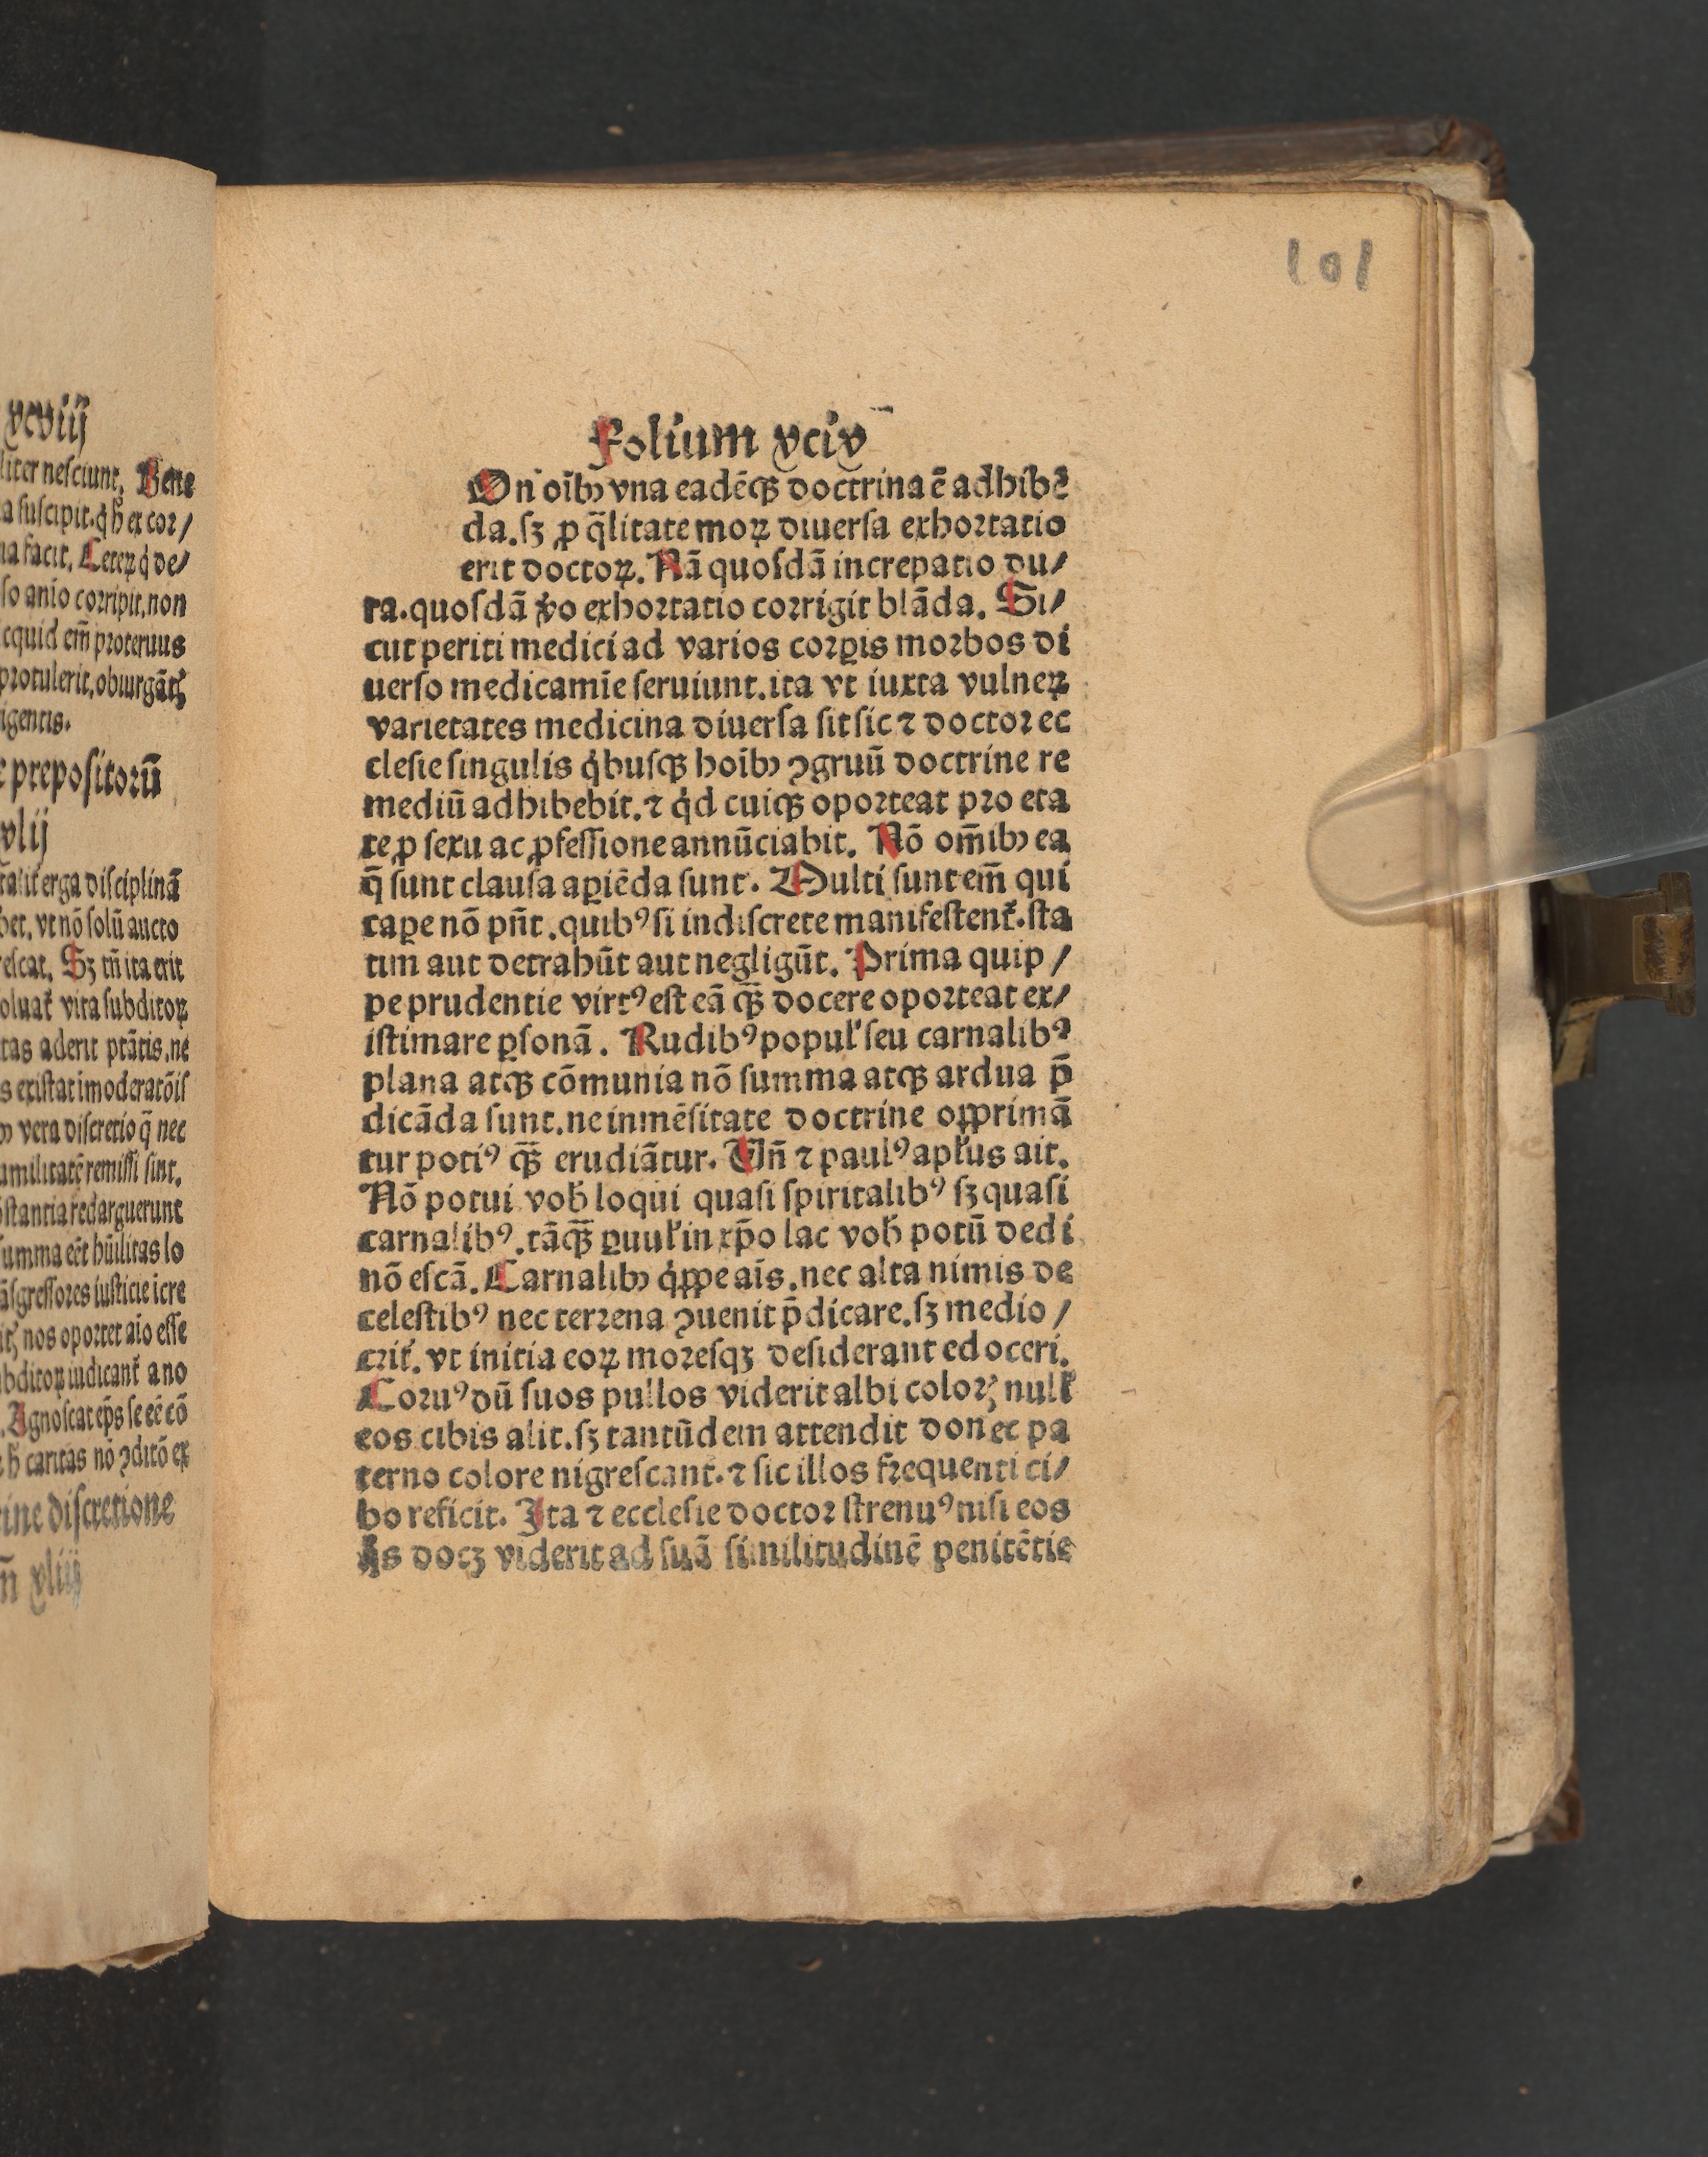 xcviij
liter nesciunt. Bene
a suscipit. qͥ hͦ ex cor/
na facit. Ceteꝝ qͥ de/
so aīo corripit, non
cquid em̄ proteruus
protulerit, obiurgāt
igentis.
e prepositorū
xlij
talit̓ erga disciplinā
bet. vt nō solū aucto
escat. Sꝫ tn̄ ita erit
oluat᷑ vita subditoꝝ
tas aderit ptātis. ne
s existat imoderatōis
vera discretio q̄ nec
umilitatē remissi sint.
stantia redarguerunt
summa eēt hūilitas lo
āsgressores iusticie icre
nos oportet aīo esse
ubditoꝝ iudicant᷑ a no
. Agnoscat ep̄s se eē cō
caritas nō ꝯditō ex
rine discretione
m̄ xliij
101
Folium xcix
On oībꝫ vna eadēqꝫ doctrina ē adhibē
da. sꝫ ꝓ q̄litate moꝝ diuersa exhortatio
erit doctoꝝ. Nā quosdā increpatio du/
ra. quosdā v̓o exhortatio corrigit blāda. Si/
cut periti medici ad varios corꝑis morbos di
uerso medicamīe seruiunt. ita vt iuxta vulneꝝ
varietates medicina diuersa sit sic ⁊ doctor ec
clesie singulis qͥbusqꝫ hoībꝫ ꝯgruū doctrine re
mediū adhibebit. ⁊ qͥd cuiqꝫ oporteat pro eta
te ꝓ sexu ac ꝓfessione annūciabit. Nō om̄ibꝫ ea
q̄ sunt clausa aꝑiēda sunt. Multi sunt em̄ qui
caꝑe nō pn̄t. quibꝰ si indiscrete manifestent᷑. sta
tim aut detrahūt aut negligūt. Prima quip/
pe prudentie virtꝰ est eā qꝫ̄ docere oporteat ex/
istimare ꝑsonā. Rudibꝰ populꝭ seu carnalibꝰ
plana atqꝫ cōmunia nō summa atqꝫ ardua p̄
dicāda sunt. ne inmēsitate doctrine opprimā
tur potiꝰ qꝫ̄ erudiātur. Vn̄ ⁊ paulꝰ apl̓us ait.
Nō potui vob̓ loqui quasi spiritalibꝰ sꝫ quasi
carnalibꝰ. tāqꝫ̄ ꝑuul̓ in xp̄o lac vob̓ potū dedi
nō escā. Carnalibꝫ qͥppe aīs. nec alta nimis de
celestibꝰ nec terrena ꝯuenit p̄dicare. sꝫ medio/
crit᷑. vt initia eoꝝ moresqꝫ desiderant edoceri.
Coruꝰ dū suos pullos viderit albi colorꝭ null̓
eos cibis alit. sꝫ tantūdem attendit donec pa
terno colore nigrescant. ⁊ sic illos frequenti ci/
bo reficit. Ita ⁊ ecclesie doctor strenuꝰ nisi eos
qͥs docꝫ viderit ad suā similitudinē penitētie